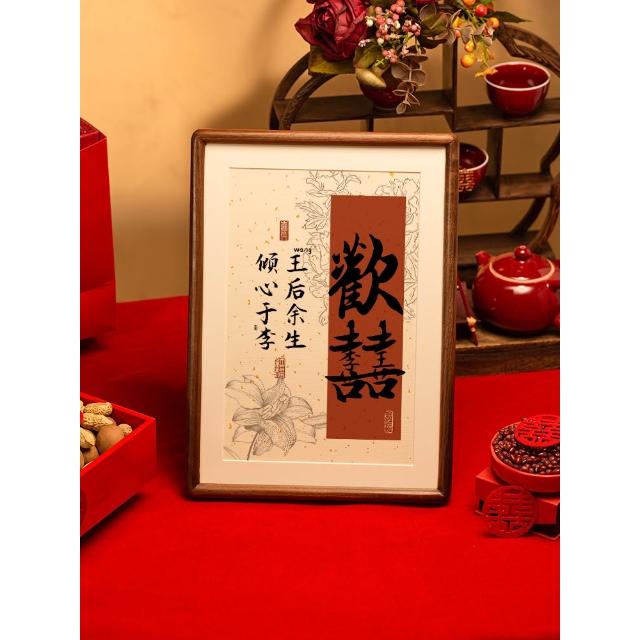 歡囍
wàng
王后余生
倾心于李